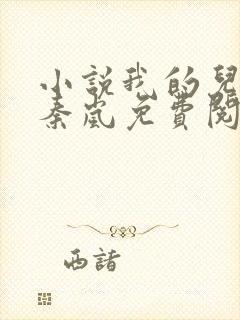 小说我的兒
秦嵐免費閱
西諸